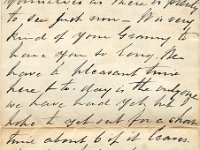 yourselves as there is plenty
to see just now - It is very
kind of your Granny to
have you so long. We
have a pleasant time
here & to-day is the only one
we have had yet. We
hope to get out for a short
time about 6 if it leaves.